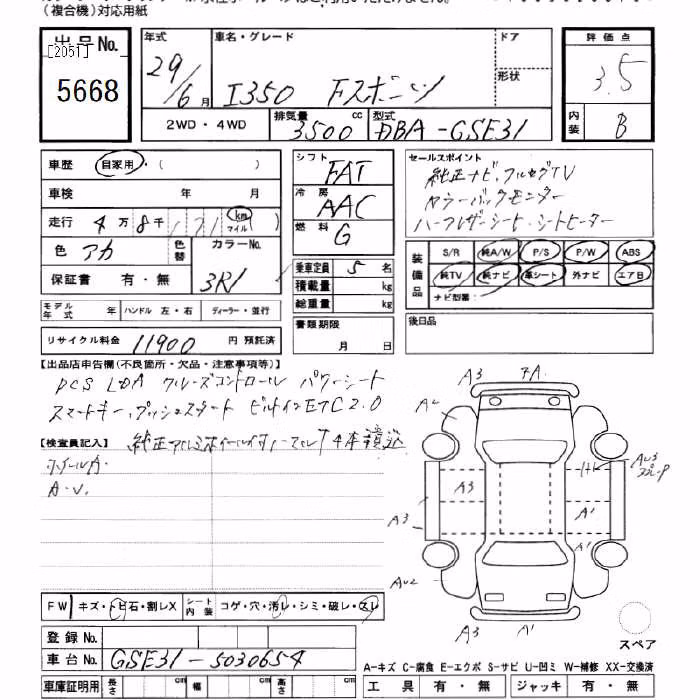 （複合機）対応用紙
出品No.
[2051]
5668
年式
29/6月
車名・グレード
I350 Fスポーツ
ドア
形状
評価点
3.5
2WD・4WD
排気量
3500 cc
型式
DBA-GSE31
内装
B
車歴 自家用・( )
車検 年 月
走行 4万8千171 km マイル
色 アカ
色替
カラーNo.
3R1
保証書 有・無
シフト FAT
冷房 AAC
燃料 G
乗車定員 5 名
積載量 kg
総重量 kg
書類期限
月 日
セールスポイント
純正ナビ、フルセグTV
カラーバックモニター
ハーフレザーシート、シートヒーター
装備品
S/R 純A/W P/S P/W ABS
純TV 純ナビ 革シート 外ナビ エアB
ナビ型番：
後日品
モデル年式 年 ハンドル 左・右 ディーラー・並行
リサイクル料金 11900 円 預託済
【出品店申告欄(不良箇所・欠品・注意事項等)】
PCS LDA クルーズコントロール パワーシート
スマートキー、プッシュスタート ビルトインETC2.0
【検査員記入】
ホイールA.
A.U.
A3
7A.
A2
A3
A3
A1
A1
AU2
A3
A1
FW キズ・トビ石・割レX
シート内装 コゲ・穴・汚レ・シミ・破レ・スレ
スペア
登録No.
車台No. GSE31-5030654
A-キズ C-腐食 E-エクボ S-サビ U-凹ミ W-補修 XX-交換済
車庫証明用 長さ cm 幅 cm 高さ cm
工具 有・無 ジャッキ 有・無